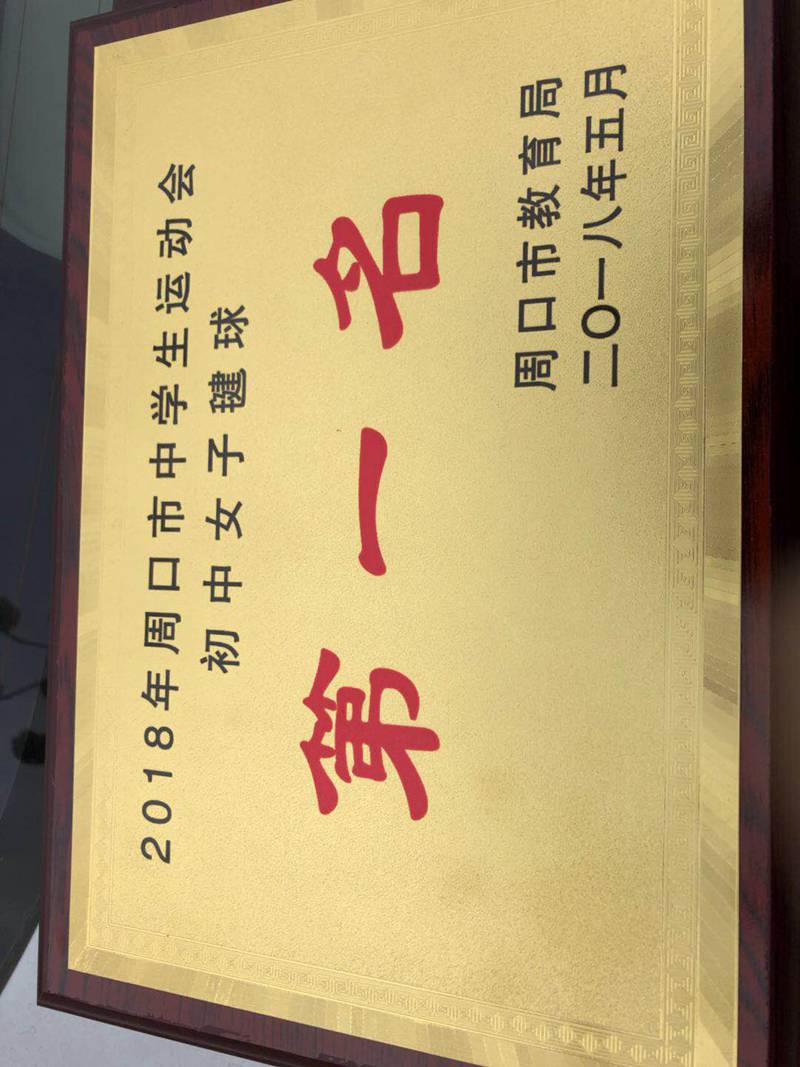 2018年周口市中学生运动会
初中女子毽球
第一名
周口市教育局
二〇一八年五月